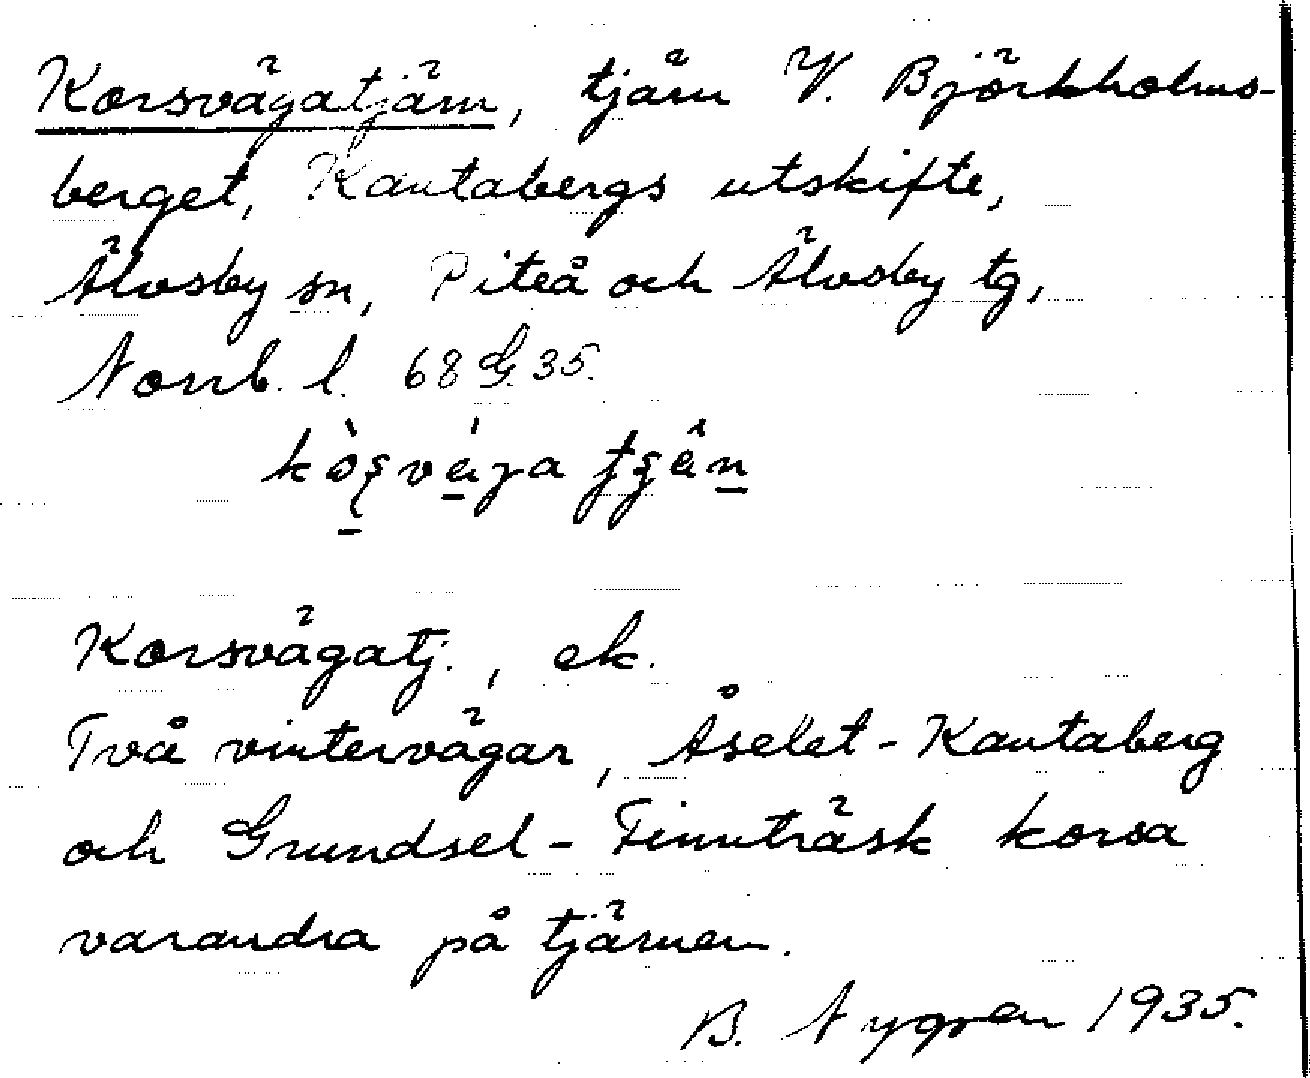 Korsvägatjärn, tjärn V. Björkholms-
berget, Kantabergs utskifte,
Älvsby sn, Piteå och Älvsby tg,
Norrb. l. 68 G. 35.
Korsvägatj., ek.
Två vintervägar, Åselet - Kantaberg
och Grundsel - Finnträsk korsa
varandra på tjärnen.
B. Nygren 1935.